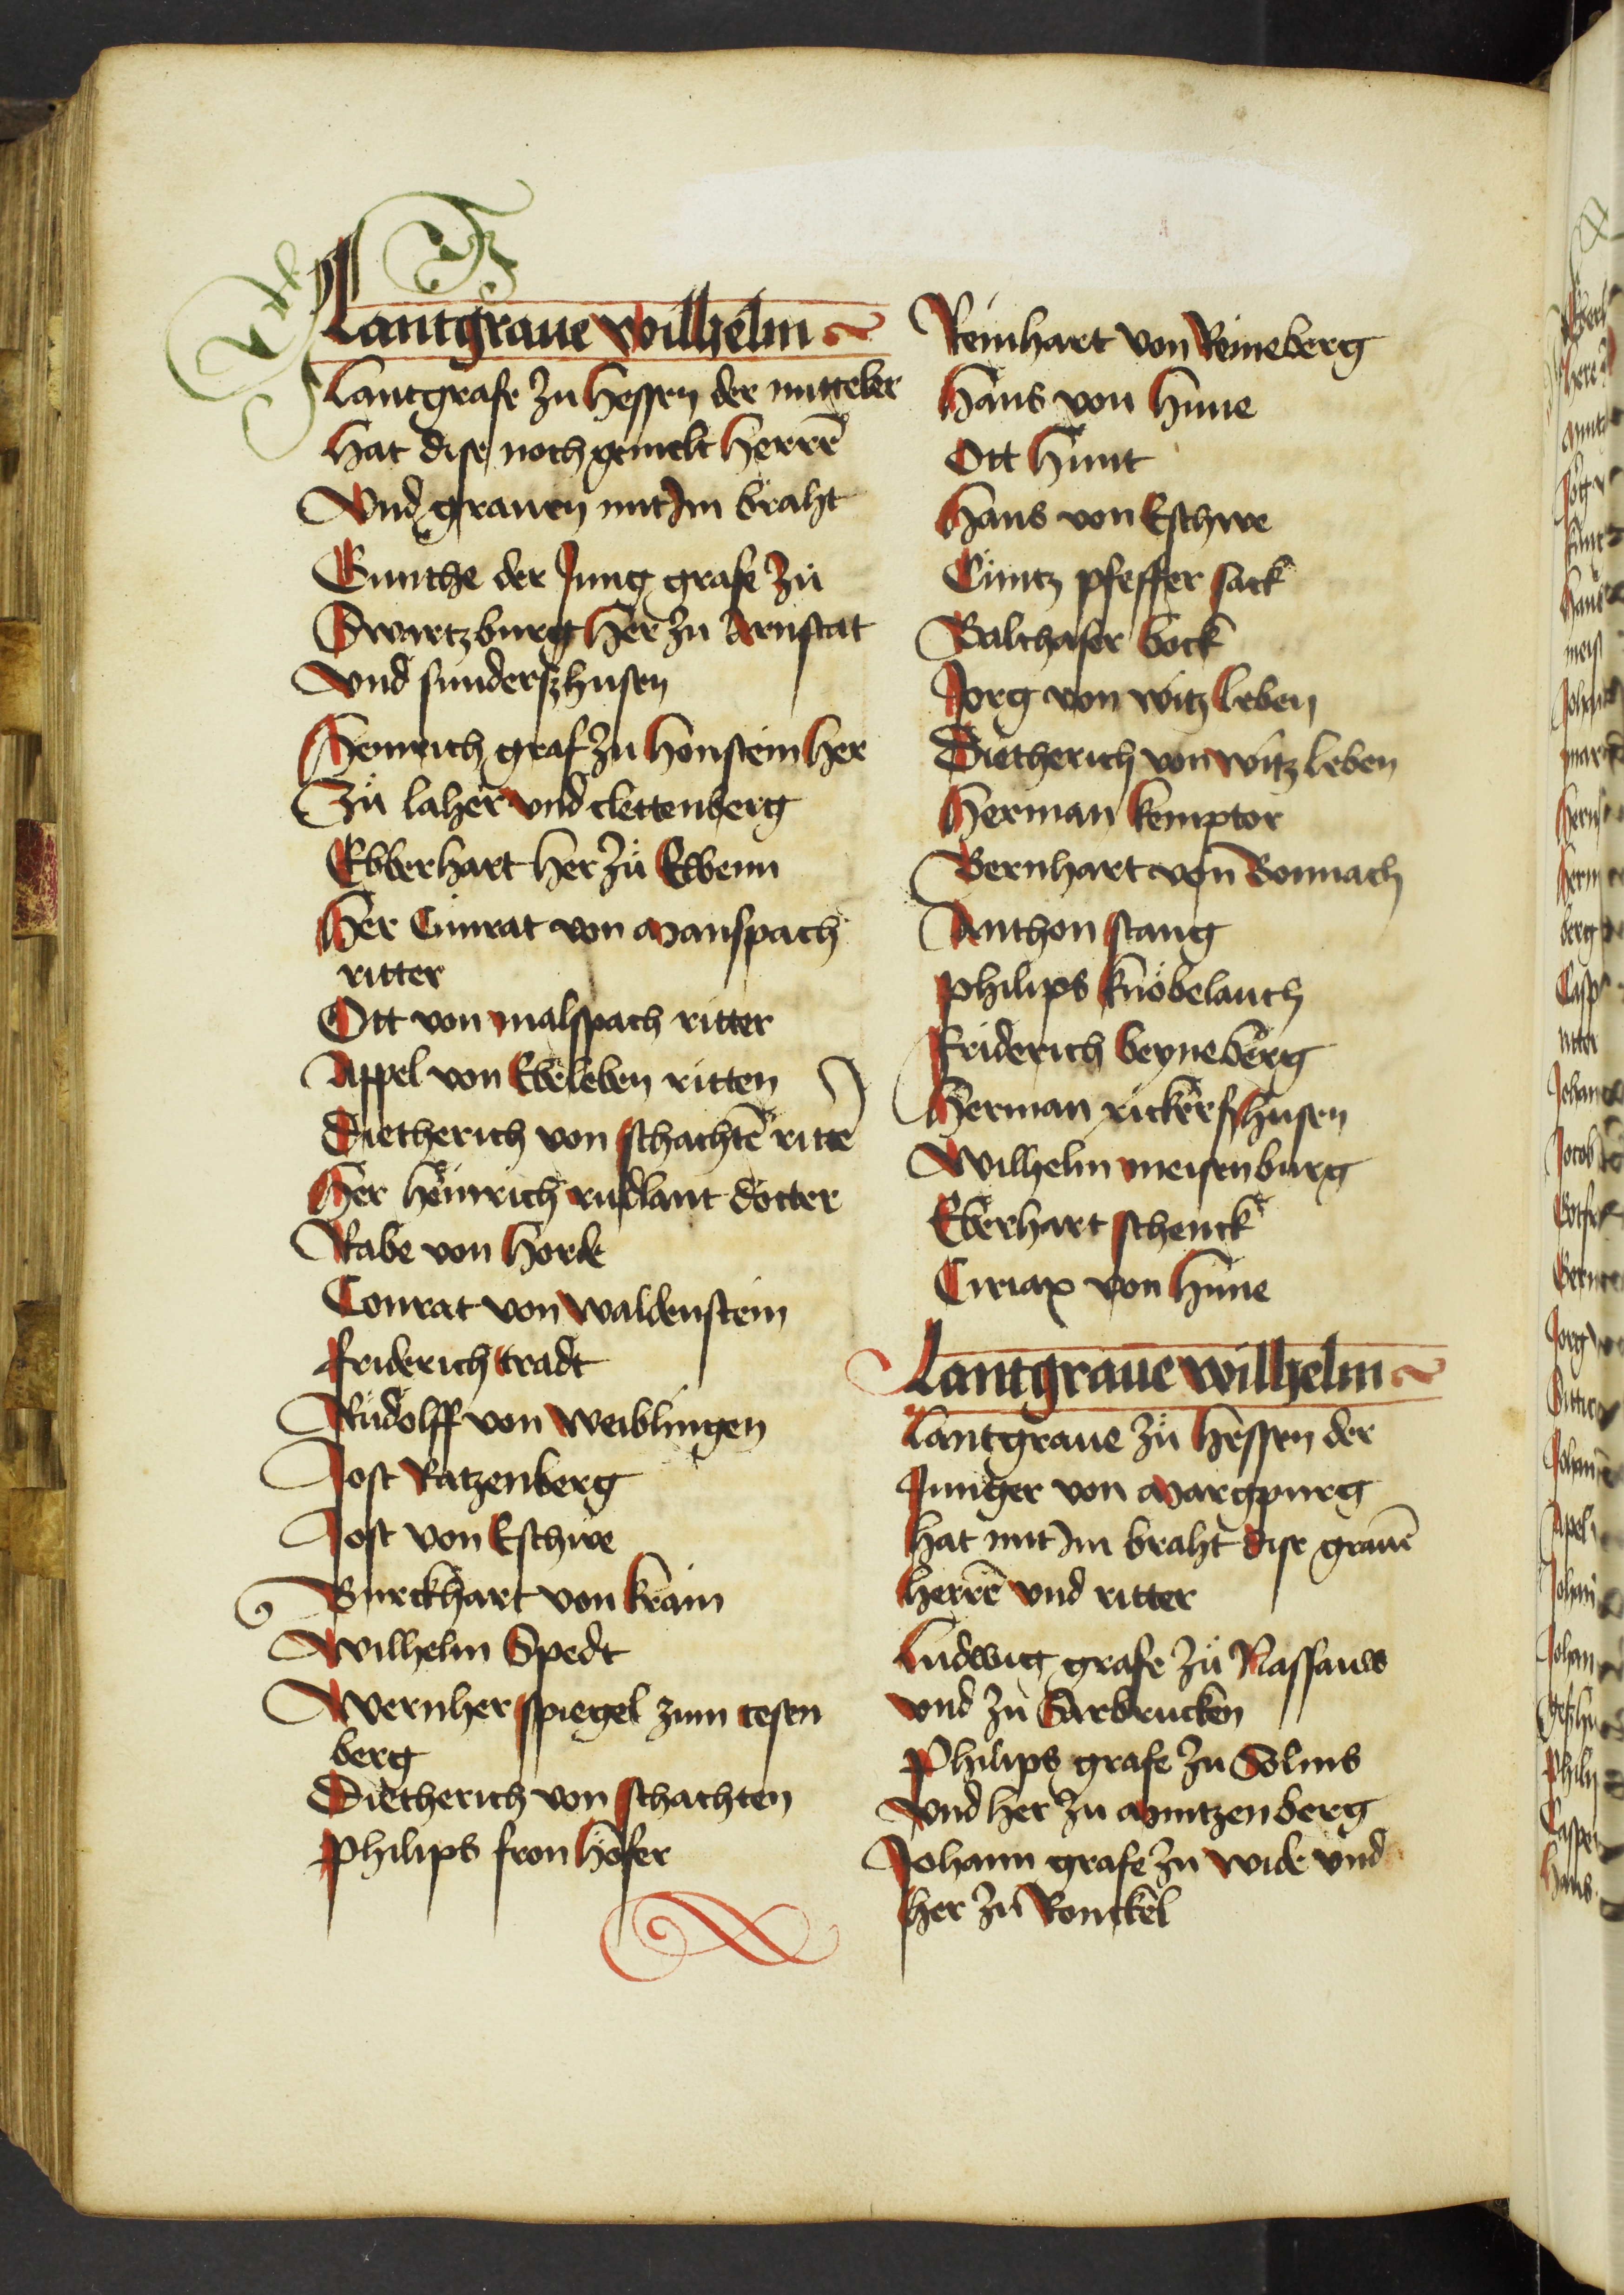 Lantgraue wilhelm
Lantgrafe zu hessen der mitteler
hat dise noch gemelt herrē
Vnd grauen mit Im braht
Gunthe der Jung grafe zü
Swartzburg her zu Arnstat
vnd sunderszhusen
Heinrich graf zu honstein her
Zü laher vnd clettenberg
Ebberhart her zü Ebbenn
Her Cünrat von Manspach
ritter
Ott von malspach ritter
Appel von Ebeleben ritten
Dietherich von schachtē rittē
Her heinrich rudlant docter
Rabe von horde
Conrat von waldenstein
friderich tradt
Rudolff von Weiblingen
Jost Ratzenberg
Jost von Eschwe
Burckhart von kram
Wilhelm Spedt
Wernher spiegel zum tesen
berg
Dietherich von schachten
Philips fron hofer
Reinhart von Reineberg
Hans von hune
Ott hunt
Hans von Eschwe
Cüntz pfeffer sack
Balthaser bock
Jorg von witzleben
Dietherich von witzleben
Herman kemptor
Bernhart von Bonnach
Anthon stang
philips knöbelauch
friderich beyneberg
Herman rickersshusen
Wilhelm meisenburg
Eberhart schenck
Ciriax von hune
Lantgraue wilhelm
Lantgraue zü hessen der
Junger von Margpurg
hat mit Im braht dise grauē
herrē vnd ritter
Ludwig grafe zü Nassauw
vnd zu Sarbrucken
Philips grafe zu Solms
vnd her zu Mintzenberg
Johann grafe zu wide vnd
her zu Ronckel